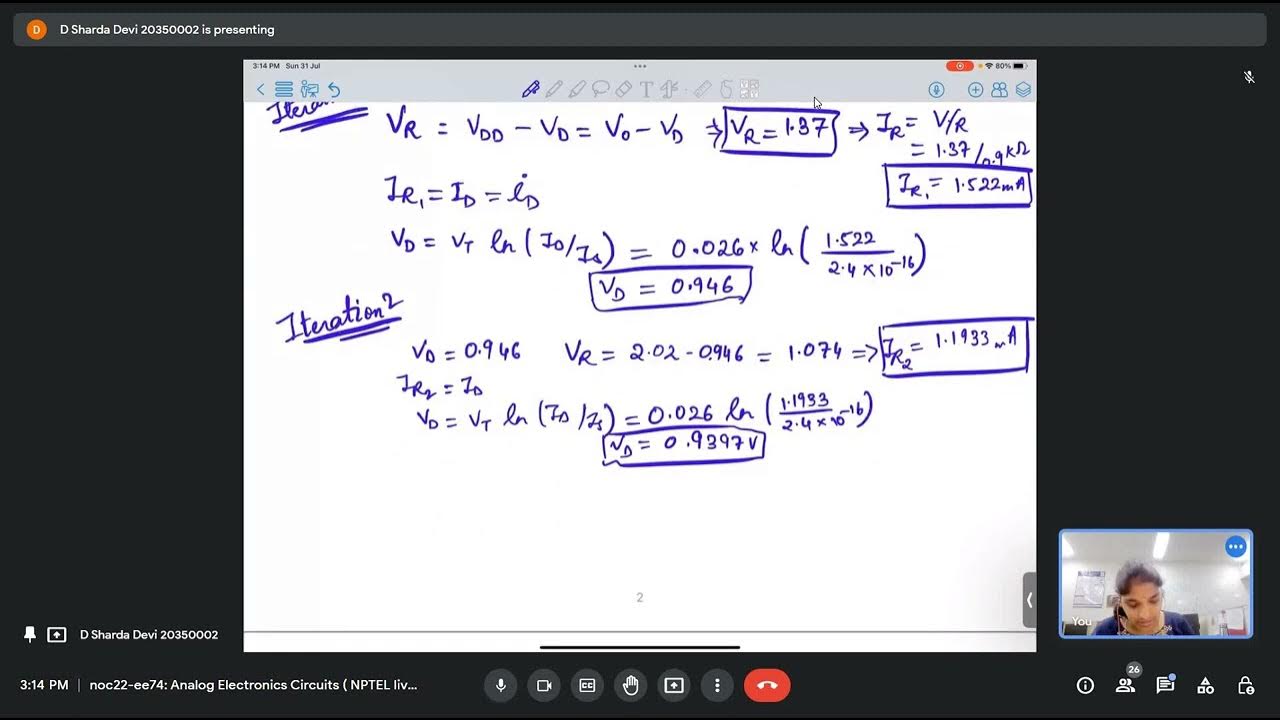 D D Sharda Devi 20350002 is presenting
3:14 PM Sun 31 Jul
80%
V_R = V_DD - V_D = V_0 - V_D ⇒ V_R = 1.37 ⇒ I_R = V/R
= 1.37/0.9kΩ
I_R₁ = 1.522mA
I_R₁ = I_D = i_D
V_D = V_T ln(I_D/I_s) = 0.026 × ln(1.522 / 2.4 × 10^-16)
V_D = 0.946
Iteration 2
V_D = 0.946 V_R = 2.02 - 0.946 = 1.074 ⇒ I_R₂ = 1.1933 mA
I_R₂ = I_D
V_D = V_T ln(I_D/I_s) = 0.026 ln(1.1933 / 2.4 × 10^-16)
V_D = 0.9397V
2
You
D Sharda Devi 20350002
26
3:14 PM | noc22-ee74: Analog Electronics Circuits ( NPTEL liv...